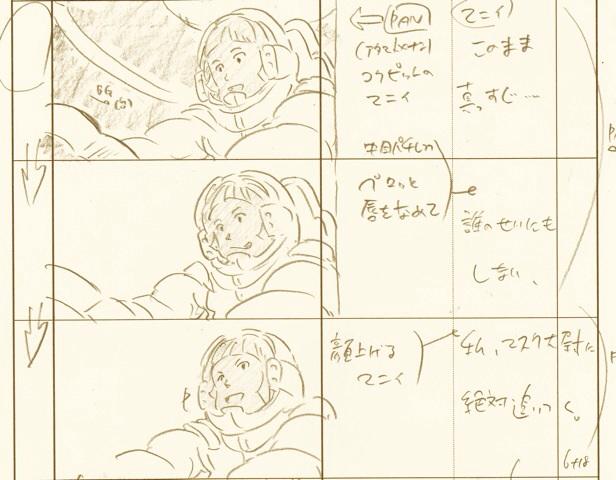 BG
PAN
コクピットの
マニィ
マニィ
このまま
真っすぐ…
ペロッと
唇をなめて
誰のせいにも
しない、
顔上げる
マニィ
私、マスク大尉に
絶対追いつく。
6+18